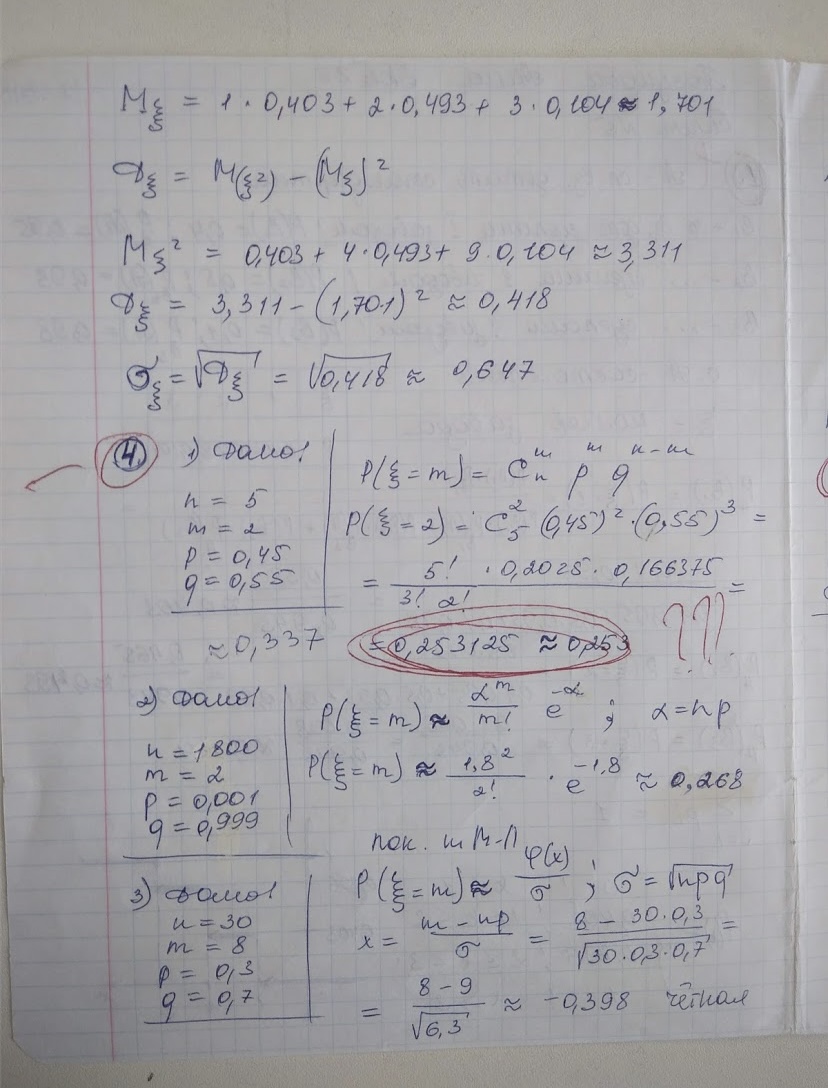 Mξ = 1 · 0,403 + 2 · 0,493 + 3 · 0,104 ≈ 1,701
Dξ = M(ξ²) − (Mξ)²
Mξ² = 0,403 + 4 · 0,493 + 9 · 0,104 ≈ 3,311
Dξ = 3,311 − (1,701)² ≈ 0,418
σξ = √Dξ = √0,418 ≈ 0,647
④ 1) Дано:
n = 5
m = 2
p = 0,45
q = 0,55
P(ξ = m) = Cₙᵐ pᵐ qⁿ⁻ᵐ
P(ξ = 2) = C₅² (0,45)² · (0,55)³ =
= 5! / (3! 2!) · 0,2025 · 0,166375 =
≈ 0,337
= 0,253125 ≈ 0,253 ???
2) Дано:
n = 1800
m = 2
p = 0,001
q = 0,999
P(ξ = m) ≈ αᵐ / m! e^(−α) ; α = np
P(ξ = m) ≈ 1,8² / 2! · e^(−1,8) ≈ 0,268
3) Дано:
n = 30
m = 8
p = 0,3
q = 0,7
лок. т М-Л
P(ξ = m) ≈ φ(x) / σ ; σ = √npq
x = (m − np) / σ = (8 − 30 · 0,3) / √(30 · 0,3 · 0,7) =
= (8 − 9) / √6,3 ≈ −0,398 чётная